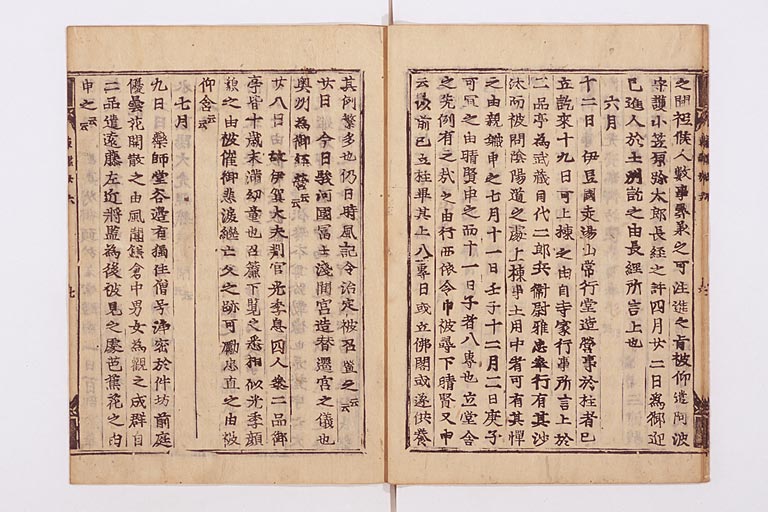 之間祗候人數事界案之可注進之旨被仰遣阿波
守護小笠原弥太郎長経之許四月廿二日為御迎
已進人於土州訖之由長経所言上也
六月
十二日伊豆國走湯山常行堂造營事於柱者已
立訖來十九日可上棟之由自寺家行事所言上於
二品亭為武藏目代二郎兵衛尉雅忠奉行有其沙
汰而被問陰陽道之處上棟事土用中者可有其憚
之由親職申之七月十一日壬子十二月二日庚子
可冝之由晴賢申之而十一日子者八專也立堂舎
之先例有之哉之由行西依令申被尋下晴賢又申
云以前已立柱畢其上八專日或立佛閣或遂供養
其例繁多也仍日時風記令治定被召置之云云
廿日今日駿河國冨士淺間宮造替遷宮之儀也
奥州為御經營云云
廿八日故伊賀大夫判官光季息四人參二品御
亭皆十歳未滿幼童也召簾下覧之悉相似光季顔
貌之由被催御悲涙繼亡父之跡可勵忠直之由被
仰含云云
七月
九日薬師堂谷邊有獨住僧号淨密於件坊前庭
優曇花開散之由風聞鎌倉中男女為觀之成群自
二品遣遠藤左近將監為後被見之處芭蕉花之由
申之云云